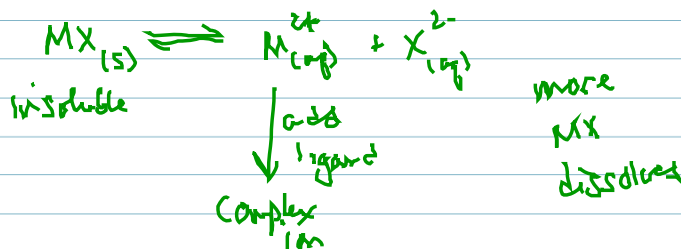 MX(s) ⇌ M²⁺(aq) + X²⁻(aq)
insoluble
add
ligand
complex
ion
more
MX
dissolves